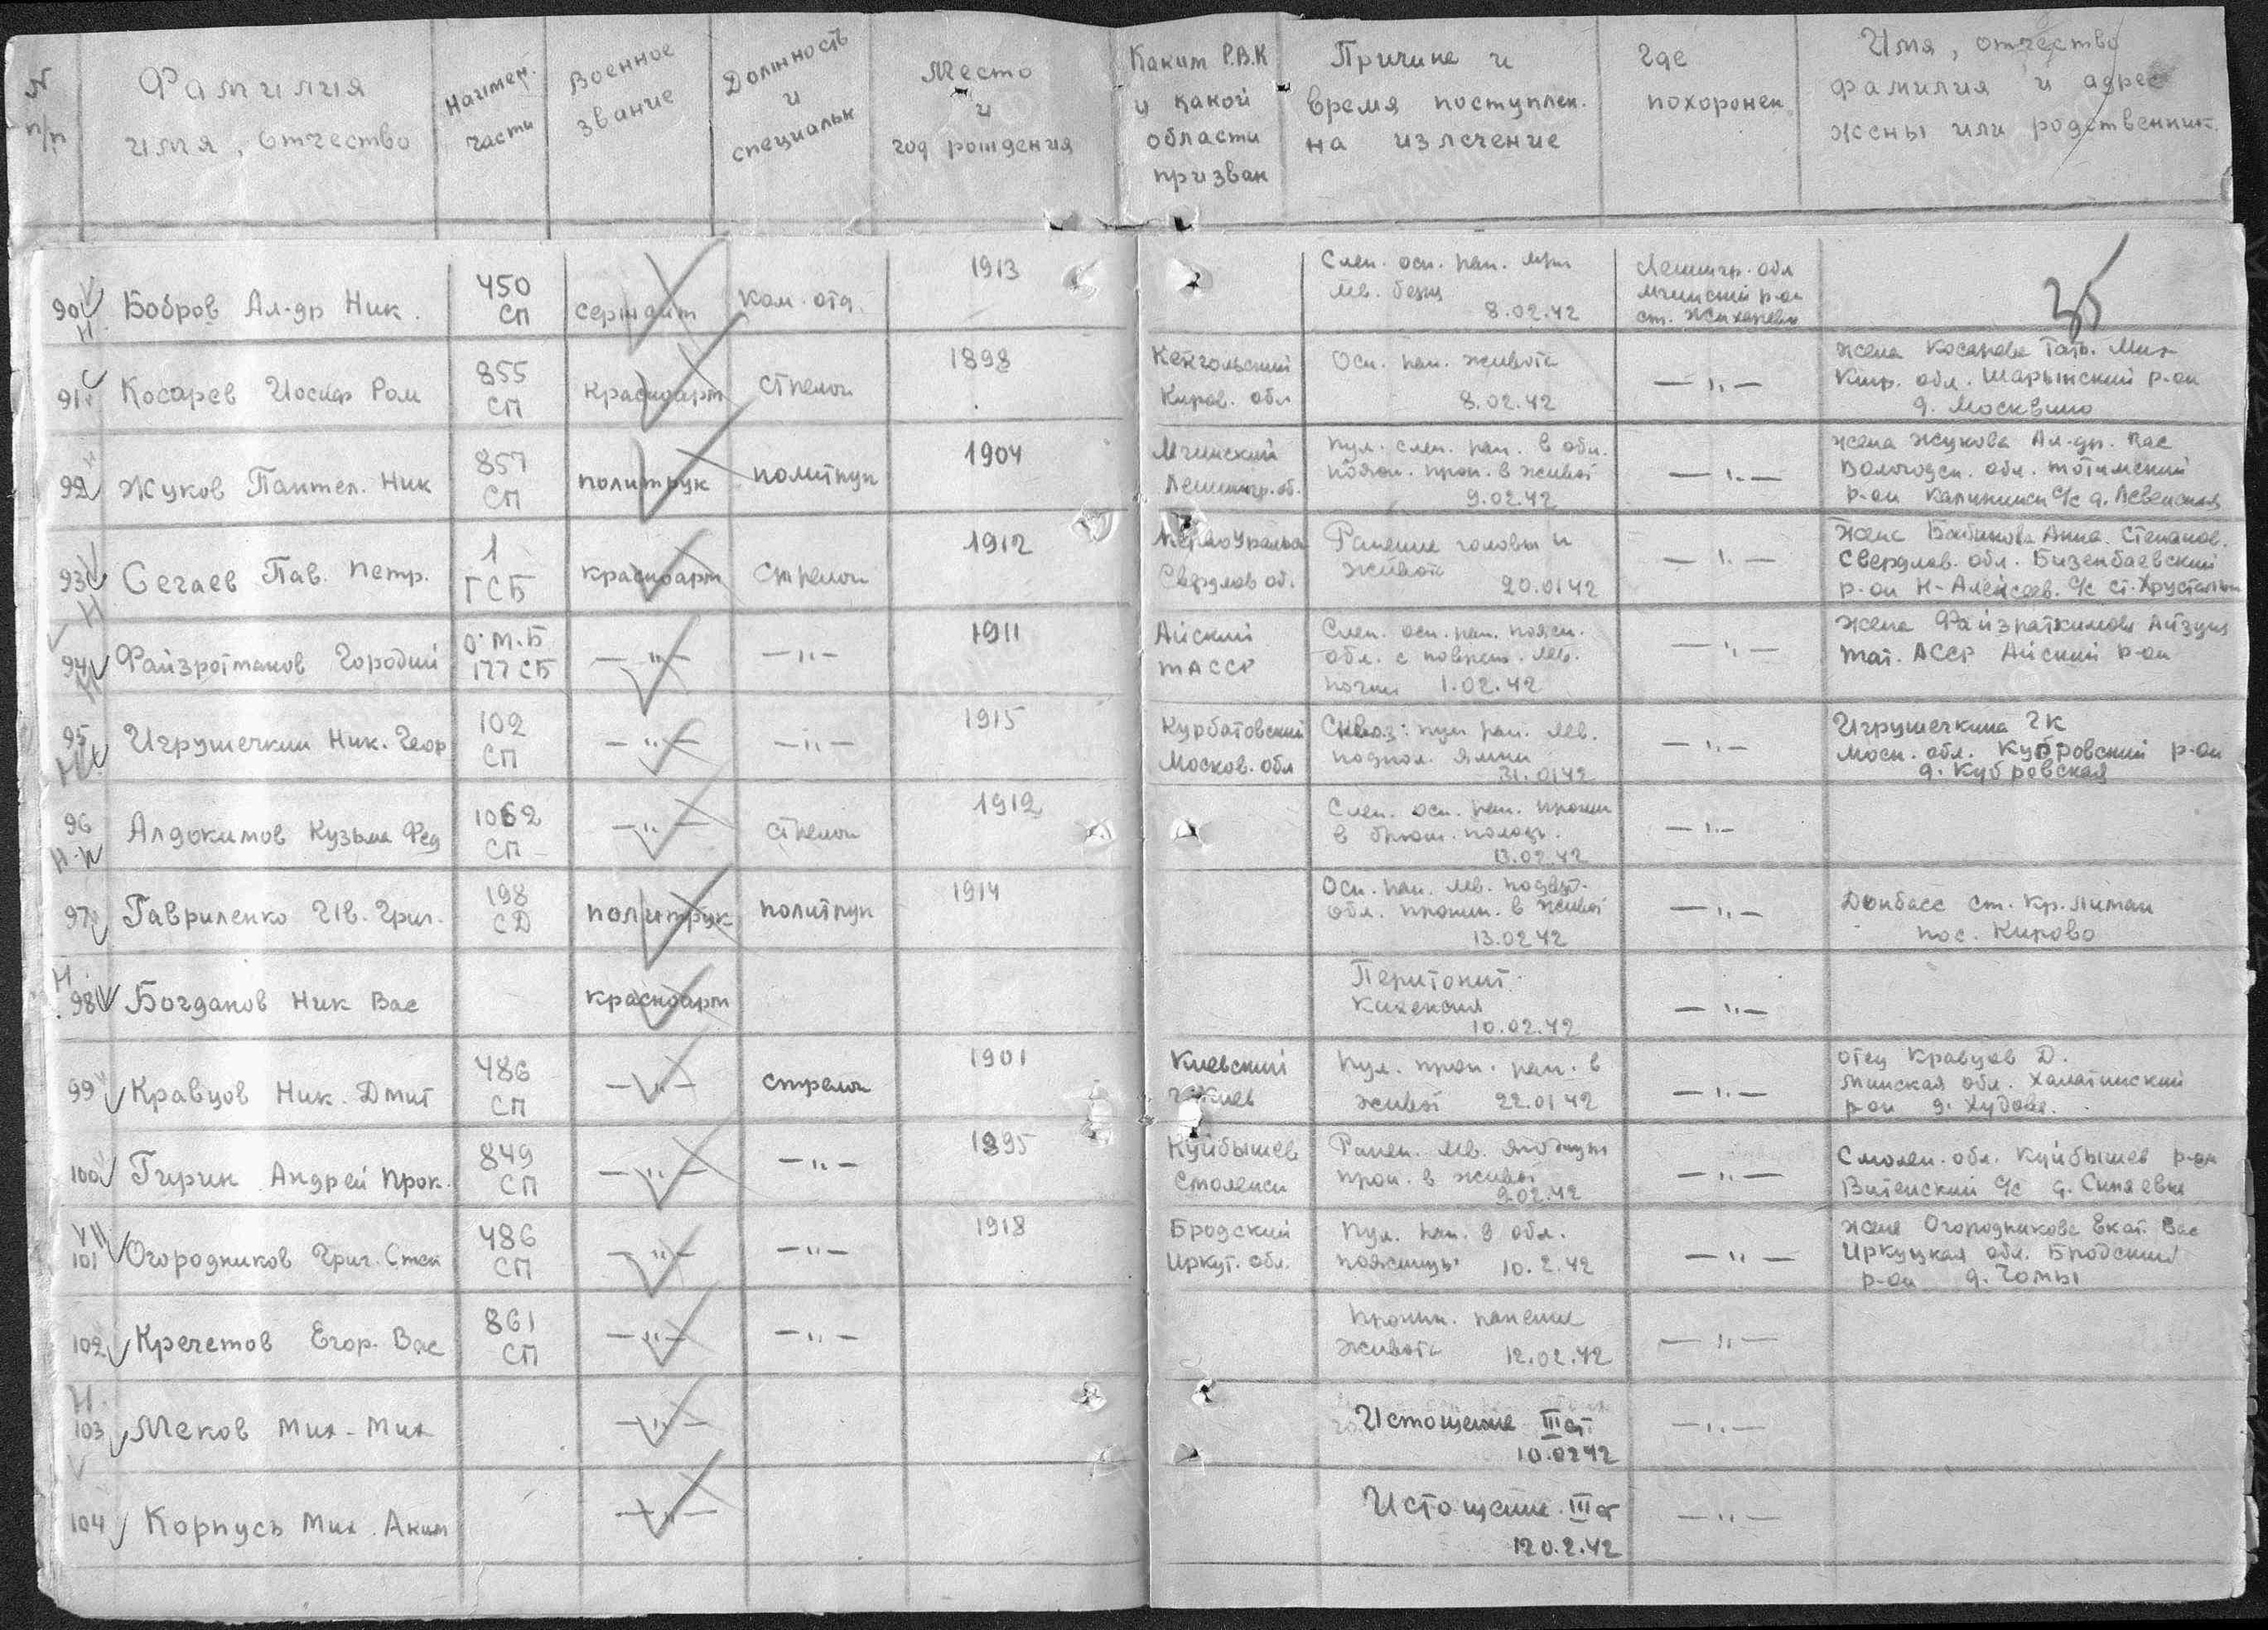 N п/п
Фамилия имя, отчество
Наимен. части
Военное звание
Должность и специальн
Место и год рождения
Каким Р.В.К и какой области призван
Причина и время поступлен. на излечение
Где похоронен
Имя, отчество фамилия и адрес жены или родственник.
35
90 Бобров Ал-др Ник.
450 СП
сержант
Ком. отд.
1913
Слеп. оск. ран.
лев. бедра
8.02.42
Ленингр. обл
Мгинский р-он
ст. Жихарево
91. Косарев Иосиф Ром
855 СП
Красноарм
стрелок
1898
Киров. обл
Оск. ран. живота
8.02.42
— " —
жена Косарева Тать. Мих
Кир. обл. Шарьинский р-он
д. Москвино
92 Жуков Пантел. Ник
857 СП
политрук
политрук
1904
Мгинский
Ленингр. об.
пул. слеп. ран. в обл.
пояс. прон. в живот
9.02.42
— " —
жена Жукова Ал-др. Вас
Вологодск. обл. Тотемский
р-он Калининск с/с д.
93 Сегаев Пав. Петр.
1 ГСБ
Красноарм
стрелок
1912
Свердлов об.
Ранение головы и
живота
20.01 42
— " —
Жена Бабинова Анна. Степанов.
Свердлов. обл. Бизенбаевский
р-он Н-Алексеев. с/с ст. Хрустальн
94 Файзротманов Городий
О.М.Б 177 СБ
— " —
— " —
1911
Айский
ТАССР
Слеп. оск. ран. поясн.
обл. с повреж. лев.
почки 1.02.42
— " —
жена Файзратжимова
Тат. АССР Айский р-он
95 Игрушечкин Ник. Геор
102 СП
— " —
— " —
1915
Курбатовский
Москов. обл
Сквоз. пул ран. лев.
подкол. ямки
31.01 42
— " —
Игрушечкина
Моск. обл. Кубровский р-он
д. Кубровская
96 Алдокимов Кузьма Фед
1062 СП
— " —
стрелок
1912
Слеп. оск. ран. проник
в брюш. полость.
13.02.42
— " —
97 Гавриленко Ив. Григ.
198 СД
политрук
политрук
1914
Оск. ран. лев. подвзд.
обл. проник. в живот
13.02 42
— " —
Донбасс ст. Кр. Лиман
пос. Кирово
98 Богданов Ник Вас
Красноарм
Перитонит.
10.02.42
— " —
99 Кравцов Ник. Дмит
486 СП
— " —
стрелок
1901
Киевский
г. Киев
Пул. прон. ран. в
живот 22.01 42
— " —
отец Кравцов Д.
Минская обл.
р-он
100 Гирин Андрей Прок.
849 СП
— " —
— " —
1895
Куйбышев
Смоленск
Ранен. лев. ягодицы
прон. в живот
9.02.42
— " —
Смолен. обл. Куйбышев р-он
с/с д. Синяевка
101 Огородников Григ. Степ
486 СП
— " —
— " —
1918
Бродский
Иркут. обл.
Пул. ран. в обл.
поясницы 10.2.42
— " —
жена Огородникова Екат. Вас
Иркуцкая обл. Бродский
р-он
102 Кречетов Егор. Вас
861 СП
— " —
— " —
Проник. ранение
живота 12.02.42
— " —
103 Меков Мих. Мих
— " —
Истощение III ст
10.02 42
— " —
104 Корпусь Мих. Аким
— " —
Истощение. III ст
12 0.2.42
— " —